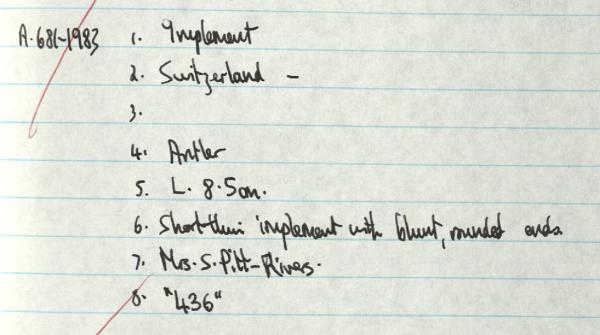 A.681-1983 1. Implement
2. Switzerland -
3.
4. Antler
5. L. 8.5cm.
6. Short thin implement with blunt, rounded ends
7. Mrs. S. Pitt-Rivers.
8. "436"